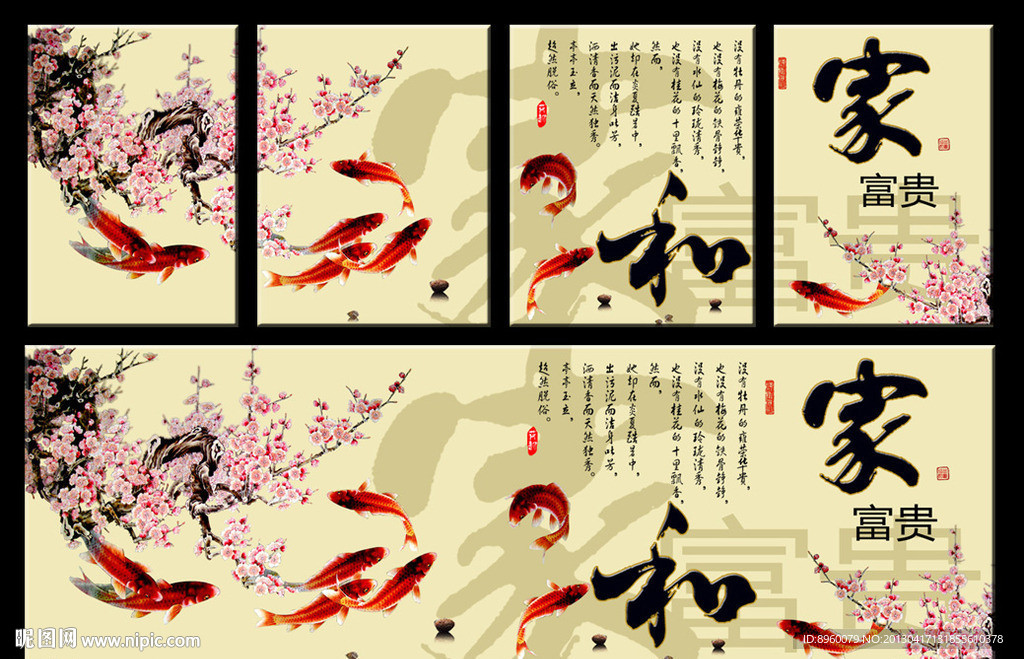 家
富贵
没有牡丹的雍荣华贵，
也没有梅花的铁骨铮铮，
没有水仙的玲珑清秀，
也没有桂花的十里飘香，
然而，
她却在炎夏酷暑中，
出污泥而洁身此芳，
洒清香而天然独秀。
亭亭玉立，
超然脱俗。
和
富贵
家
富贵
没有牡丹的雍荣华贵，
也没有梅花的铁骨铮铮，
没有水仙的玲珑清秀，
也没有桂花的十里飘香，
然而，
她却在炎夏酷暑中，
出污泥而洁身此芳，
洒清香而天然独秀。
亭亭玉立，
超然脱俗。
和
富贵
昵图网 www.nipic.com
ID:8960079 NO:20130417131658610378